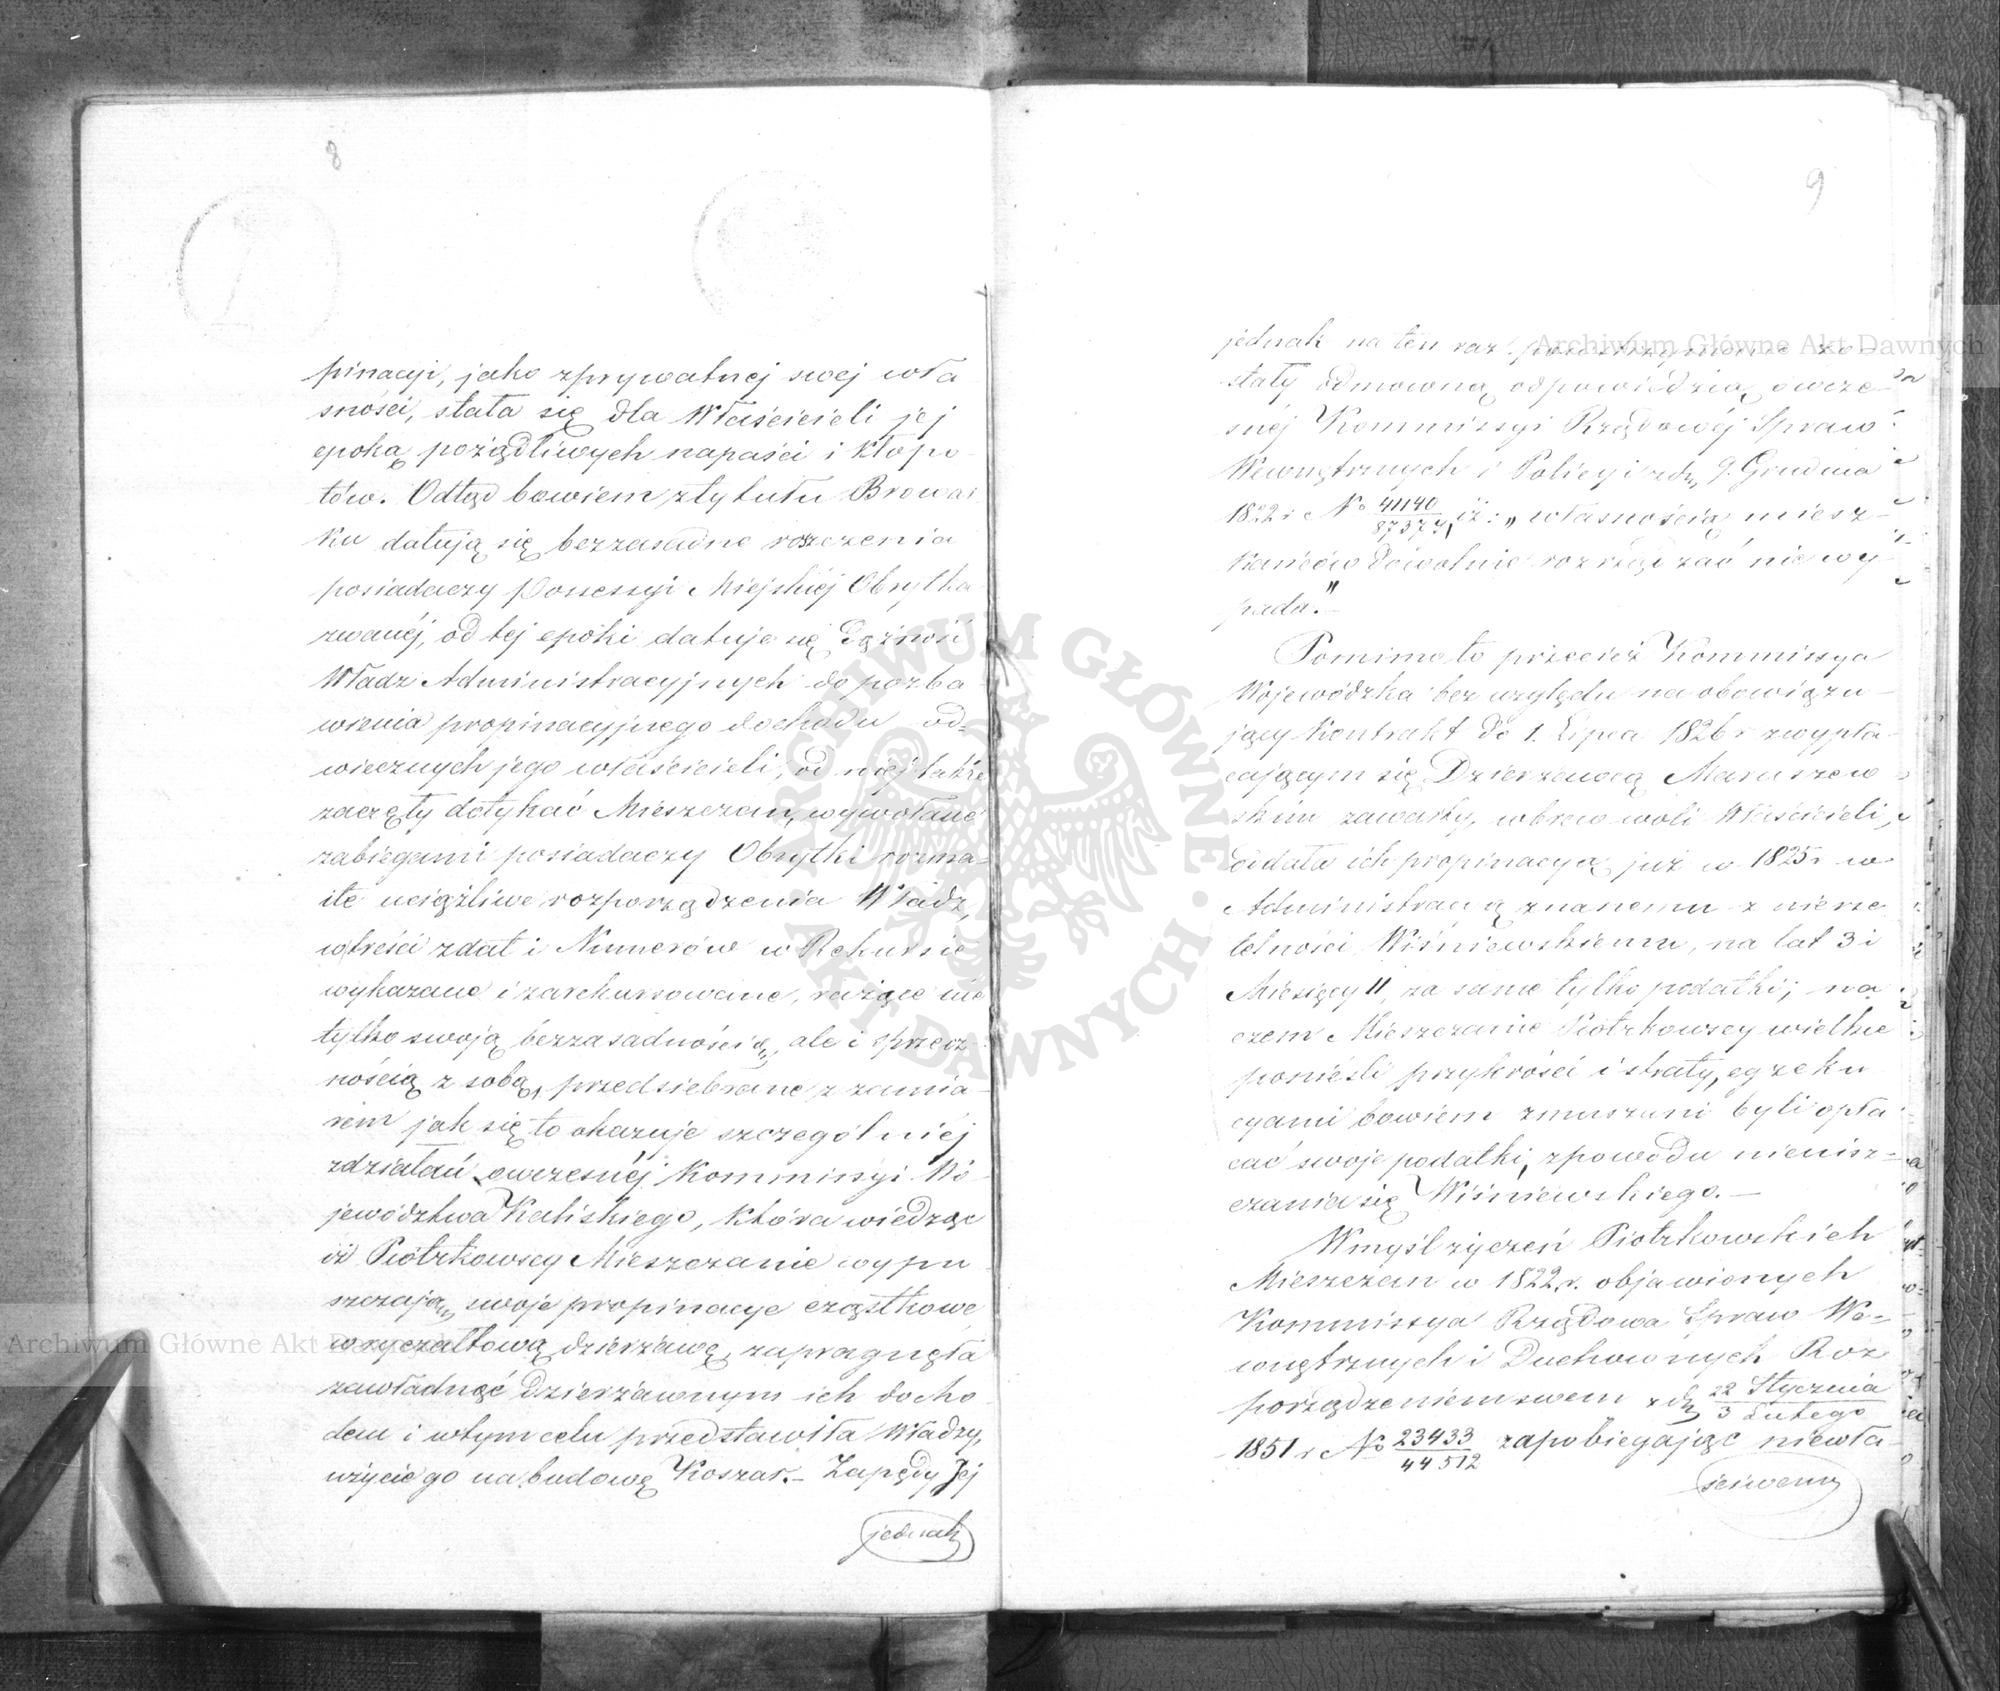 8
pinacyi, jako zprywatnej swej wła
sności, stała się dla Właścicieli jej
epoką pożądliwych napaści i kłopo
tów. Odtąd bowiem ztytułu Browar
ku datują się bezzasadne roszczenia
posiadaczy Possessyi Miejskiéj Obrytka
zwanéj, od tej epoki datuje się dążność
Władz Administracyjnych do pozba
wienia propinacyjnego dochodu od=
wiecznych jego właścicieli, od niej także
zaczęły dotykać Mieszczan, wywołane
zabiegami posiadaczy Obrytki rozma=
ite uciążliwe rozporządzenia Władz,
wtreści zdat i Numerów w Rekursie
wykazane i zarekursowane, rażące nie
tylko swoją bezzasadnością, ale i sprzecz=
nością z sobą, przedsiebrane z zamia=
rem jak się to okazuje szczególniéj
zdziałań owczesnéj Kommissyi Wo
jewództwa Kaliskiego, która wiedząc
iż Piotrkowscy Mieszczanie wypu
szczają swoje propinacye cząstkowe
wryczałtową dzierżawę, zapragnęła
zawładnąć dzierżawnym ich docho
dem i wtym celu przedstawiła Władzy,
użycie go na budowę Koszar.– Zapędy Jej
jednak
9
jednak na ten raz powstrzymane zo=
stały odmowną odpowiedzią owcze=
snéj Kommissyi Rządowéj Spraw
Wewnętrznych i Policyi zdn. 9. Grudnia
1822 r No 41140/87374, iż: „własnością miesz=
kańców dowolnie rozrządzać nie wy
pada."–
Pomimo to przecież Kommissya
Wojewódzka bez względu na obowiązu=
jący kontrakt do 1. Lipca 1826 r zwypła=
cającym się Dzierżawcą Maruszew
skim zawarty, wbrew woli Właścicieli,
oddała ich propinacyą już w 1825 r w
Administracyą znanemu z nierze
telności Wiśniewskiemu, na lat 3 i
Miesięcy 11, za same tylko podatki; na
czem Mieszczanie Piotrkowscy wielkie
ponieśli przykrości i straty, egzeku
cyami bowiem zmuszani byli opła
cać swoje podatki, zpowodu nieuisz=
czania się Wiśniewskiego.–
Wmyśl życzeń Piotrkowskich
Mieszczan w 1822 r. objawionych
Kommissya Rządowa Spraw We=
wnętrznych i Duchownych Roz
porządzeniem swem zdn 22 Stycznia/3 Lutego
1851 r No 23433/44512 zapobiegając niewła=
ściwemu
Archiwum Główne Akt Dawnych
Archiwum Główne Akt Dawnych
ARCHIWUM GŁÓWNE AKT DAWNYCH